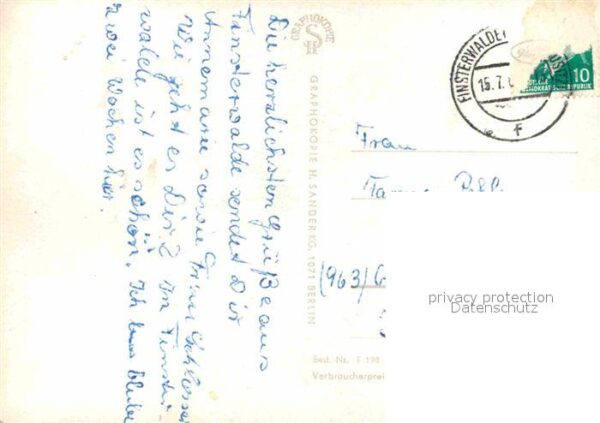 Die herzlichsten Grüße aus
Finsterwalde sendet Dir
Annemarie sowie Frau Schlosser
Wie geht es Dir? In Finster-
walde ist es schön. Ich bleibe
zwei Wochen hier.
GRAPHOKOPIE
H S
GRAPHOKOPIE H. SANDER KG, 1071 BERLIN
Best. Nr. F 198
Verbraucherprei
FINSTERWALDE
15.7.
f
10
DEMOKRATISCHE REPUBLIK
Frau
(963/G
privacy protection
Datenschutz